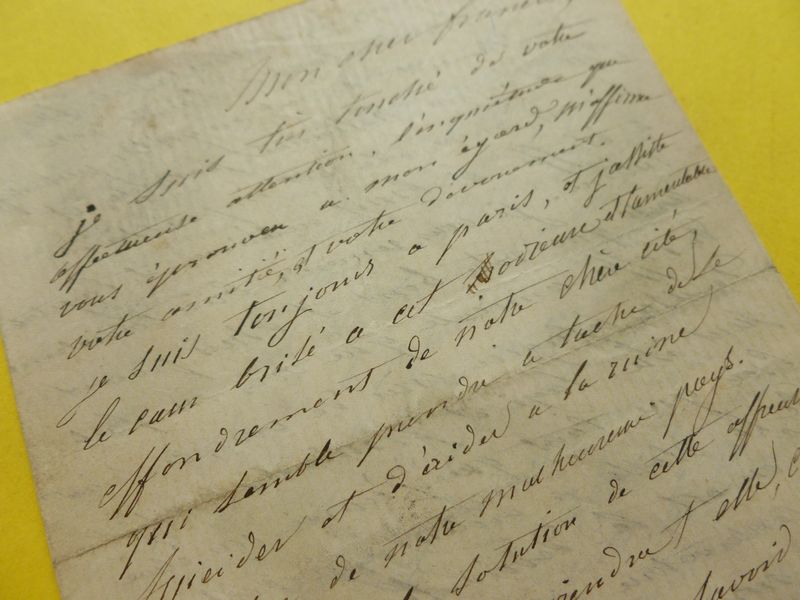 Mon cher Francis,
je suis très touché de votre
affectueuse attention, l'inquiétude que
vous éprouvez a mon égard, m'affirme
votre amitié, et votre dévouement.
je suis toujours a paris, et j'assiste
le cœur brisé a cet odieux et lamentable
effondrement de notre chère cité,
qui semble prendre a tache de se
suicider et d'aider a la ruine
de notre malheureux pays.
solution de cette affreu
viendra t elle,
savoir